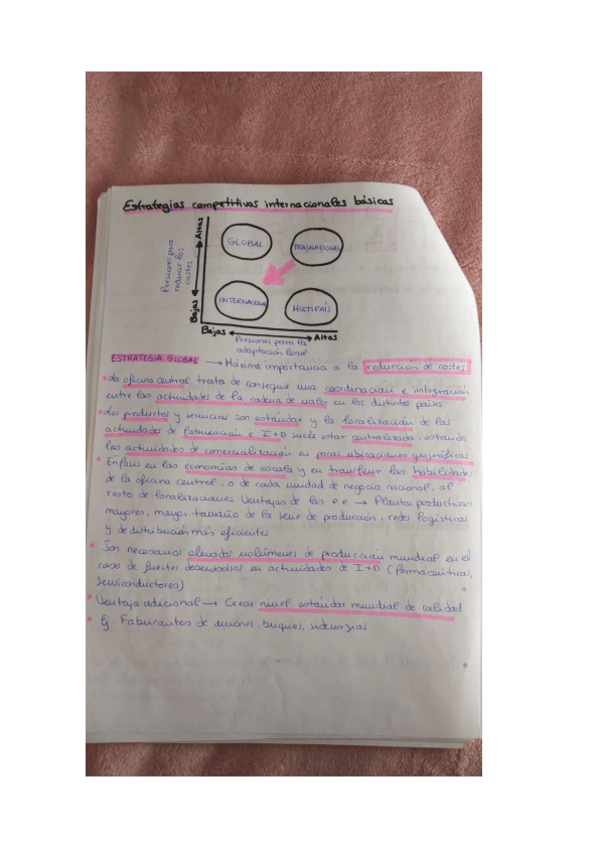 Estrategias competitivas internacionales básicas
Altas
Presiones para
reducir los
costes
Bajas
GLOBAL
TRASNACIONAL
INTERNACIONAL
MULTIPAÍS
Bajas
Altas
Presiones para la
adaptación local
ESTRATEGIA GLOBAL → Máxima importancia a la reducción de costes
• La oficina central trata de conseguir una coordinación e integración
entre las actividades de la cadena de valor en los distintos países
• Los productos y servicios son estándar y la localización de las
actividades de fabricación e I+D suele estar centralizada, estando
las actividades de comercialización en pocas ubicaciones geográficas
• Énfasis en las economías de escala y en transferir las habilidades
de la oficina central, o de cada unidad de negocio nacional, al
resto de localizaciones. Ventajas de las e.e → Plantas productivas
mayores, mayor tamaño de la serie de producción, redes logísticas
y de distribución más eficientes
• Son necesarios elevados volúmenes de producción mundial en el
caso de fuertes desembolsos en actividades de I+D (farmacéuticas,
semiconductores)
• Ventaja adicional → Crear nivel estándar mundial de calidad
• Ej: Fabricantes de aviones, buques, siderurgias